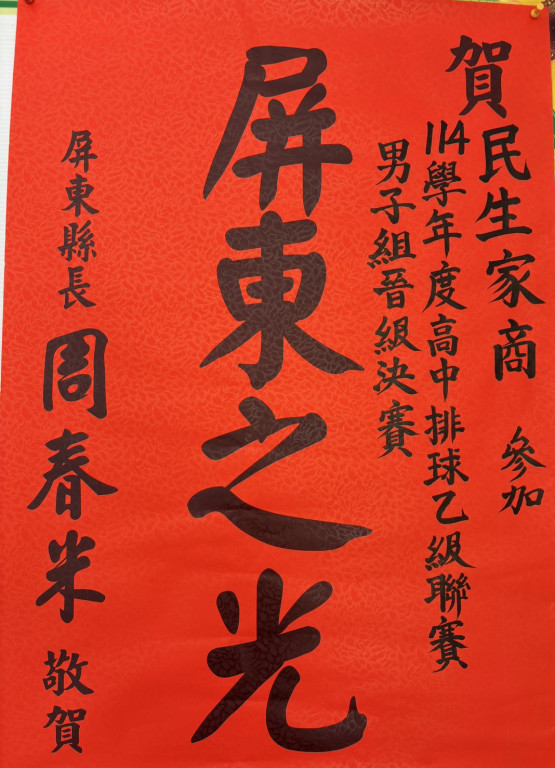 賀民生家商 參加
114學年度高中排球乙級聯賽
男子組晉級決賽
屏東之光
屏東縣長 周春米 敬賀